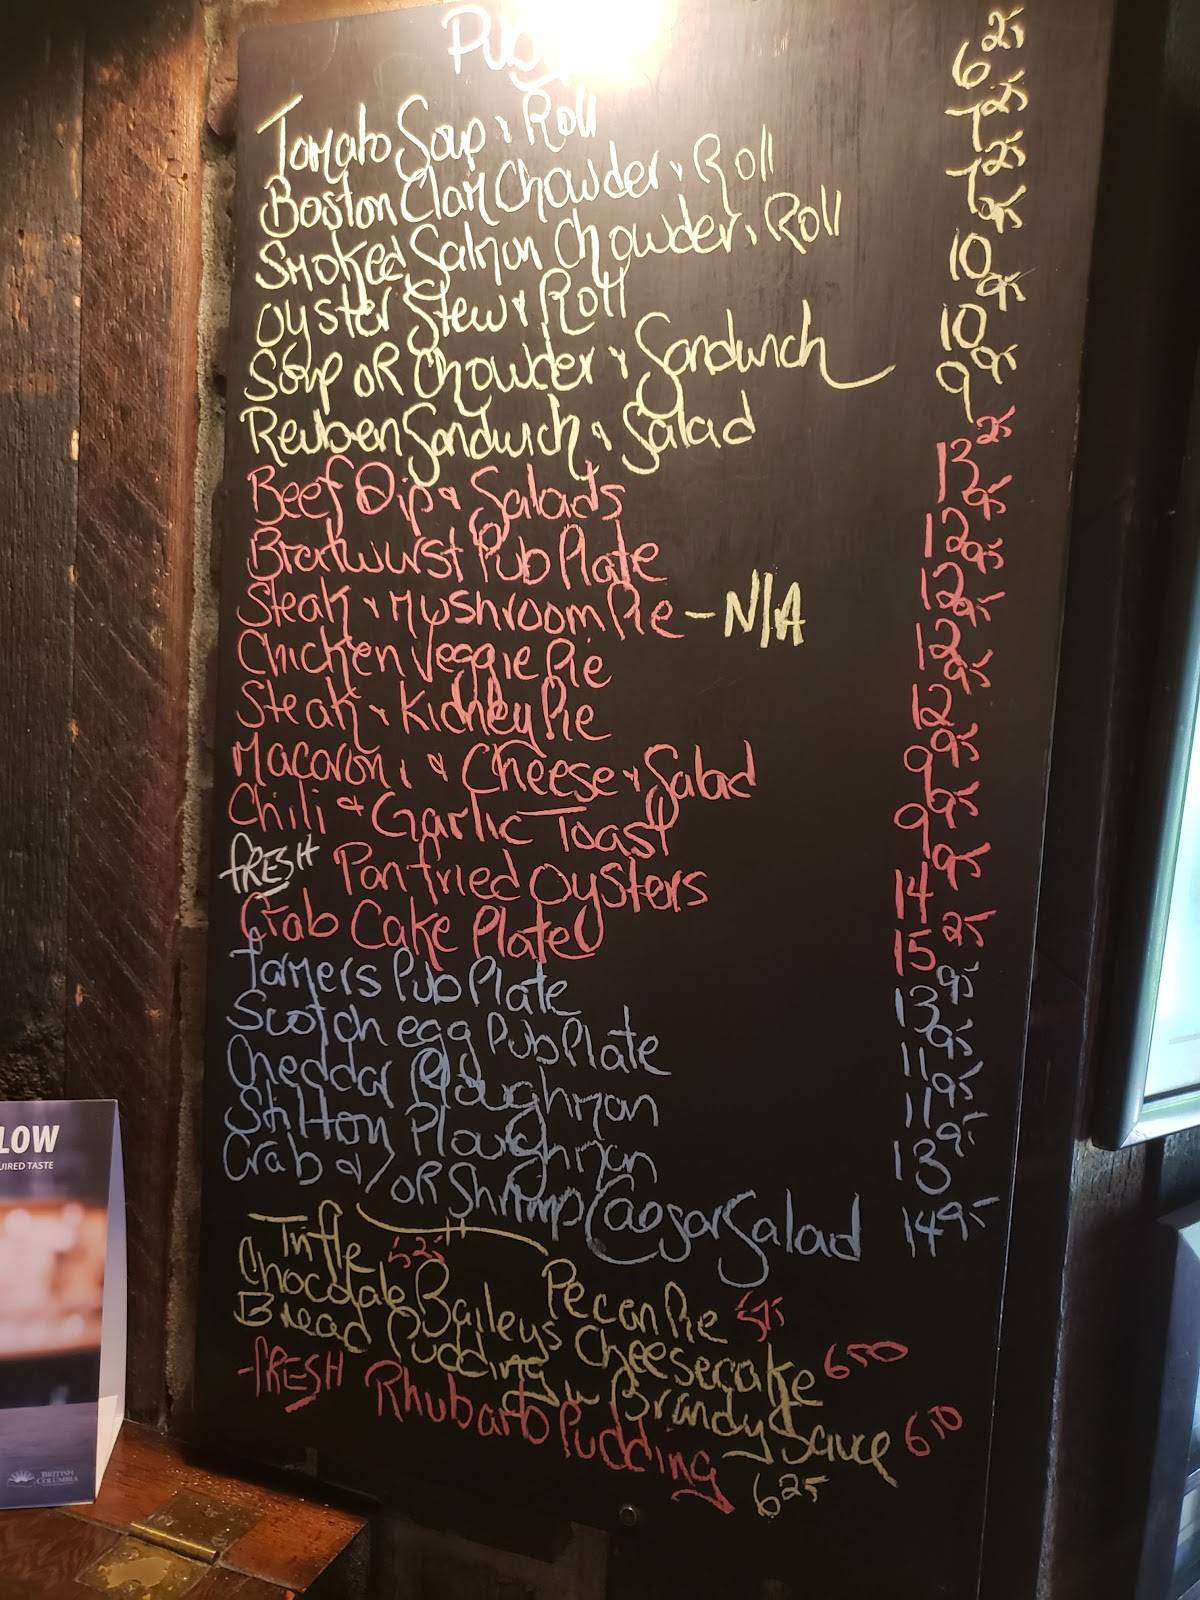 Pub
Tomato Soup & Roll 6 25
Boston Clam Chowder & Roll 7 25
Smoked Salmon Chowder & Roll 7 25
Oyster Stew & Roll 10 95
Soup OR Chowder & Sandwich 10 95
Reuben Sandwich & Salad 9 95
Beef Dip & Salads 13 25
Bratwurst Pub Plate 12 95
Steak & Mushroom Pie - N/A 12 95
Chicken Veggie Pie 12 95
Steak & Kidney Pie 12 95
Macaroni & Cheese & Salad 9 95
Chili & Garlic Toast 9 95
FRESH Pan fried Oysters 14 95
Crab Cake Plate 15 25
Farmers Pub Plate 13 95
Scotch egg Pub Plate 11 95
Cheddar Ploughman 11 95
Stilton Ploughman 13 95
Crab &/OR Shrimp Caesar Salad 14 95
Trifle 5 25 Pecan Pie
Chocolate Baileys Cheesecake 6 50
Bread Pudding w Brandy Sauce 6 50
FRESH Rhubarb Pudding 6 25
LOW
UIRED TASTE
BRITISH
COLUMBIA